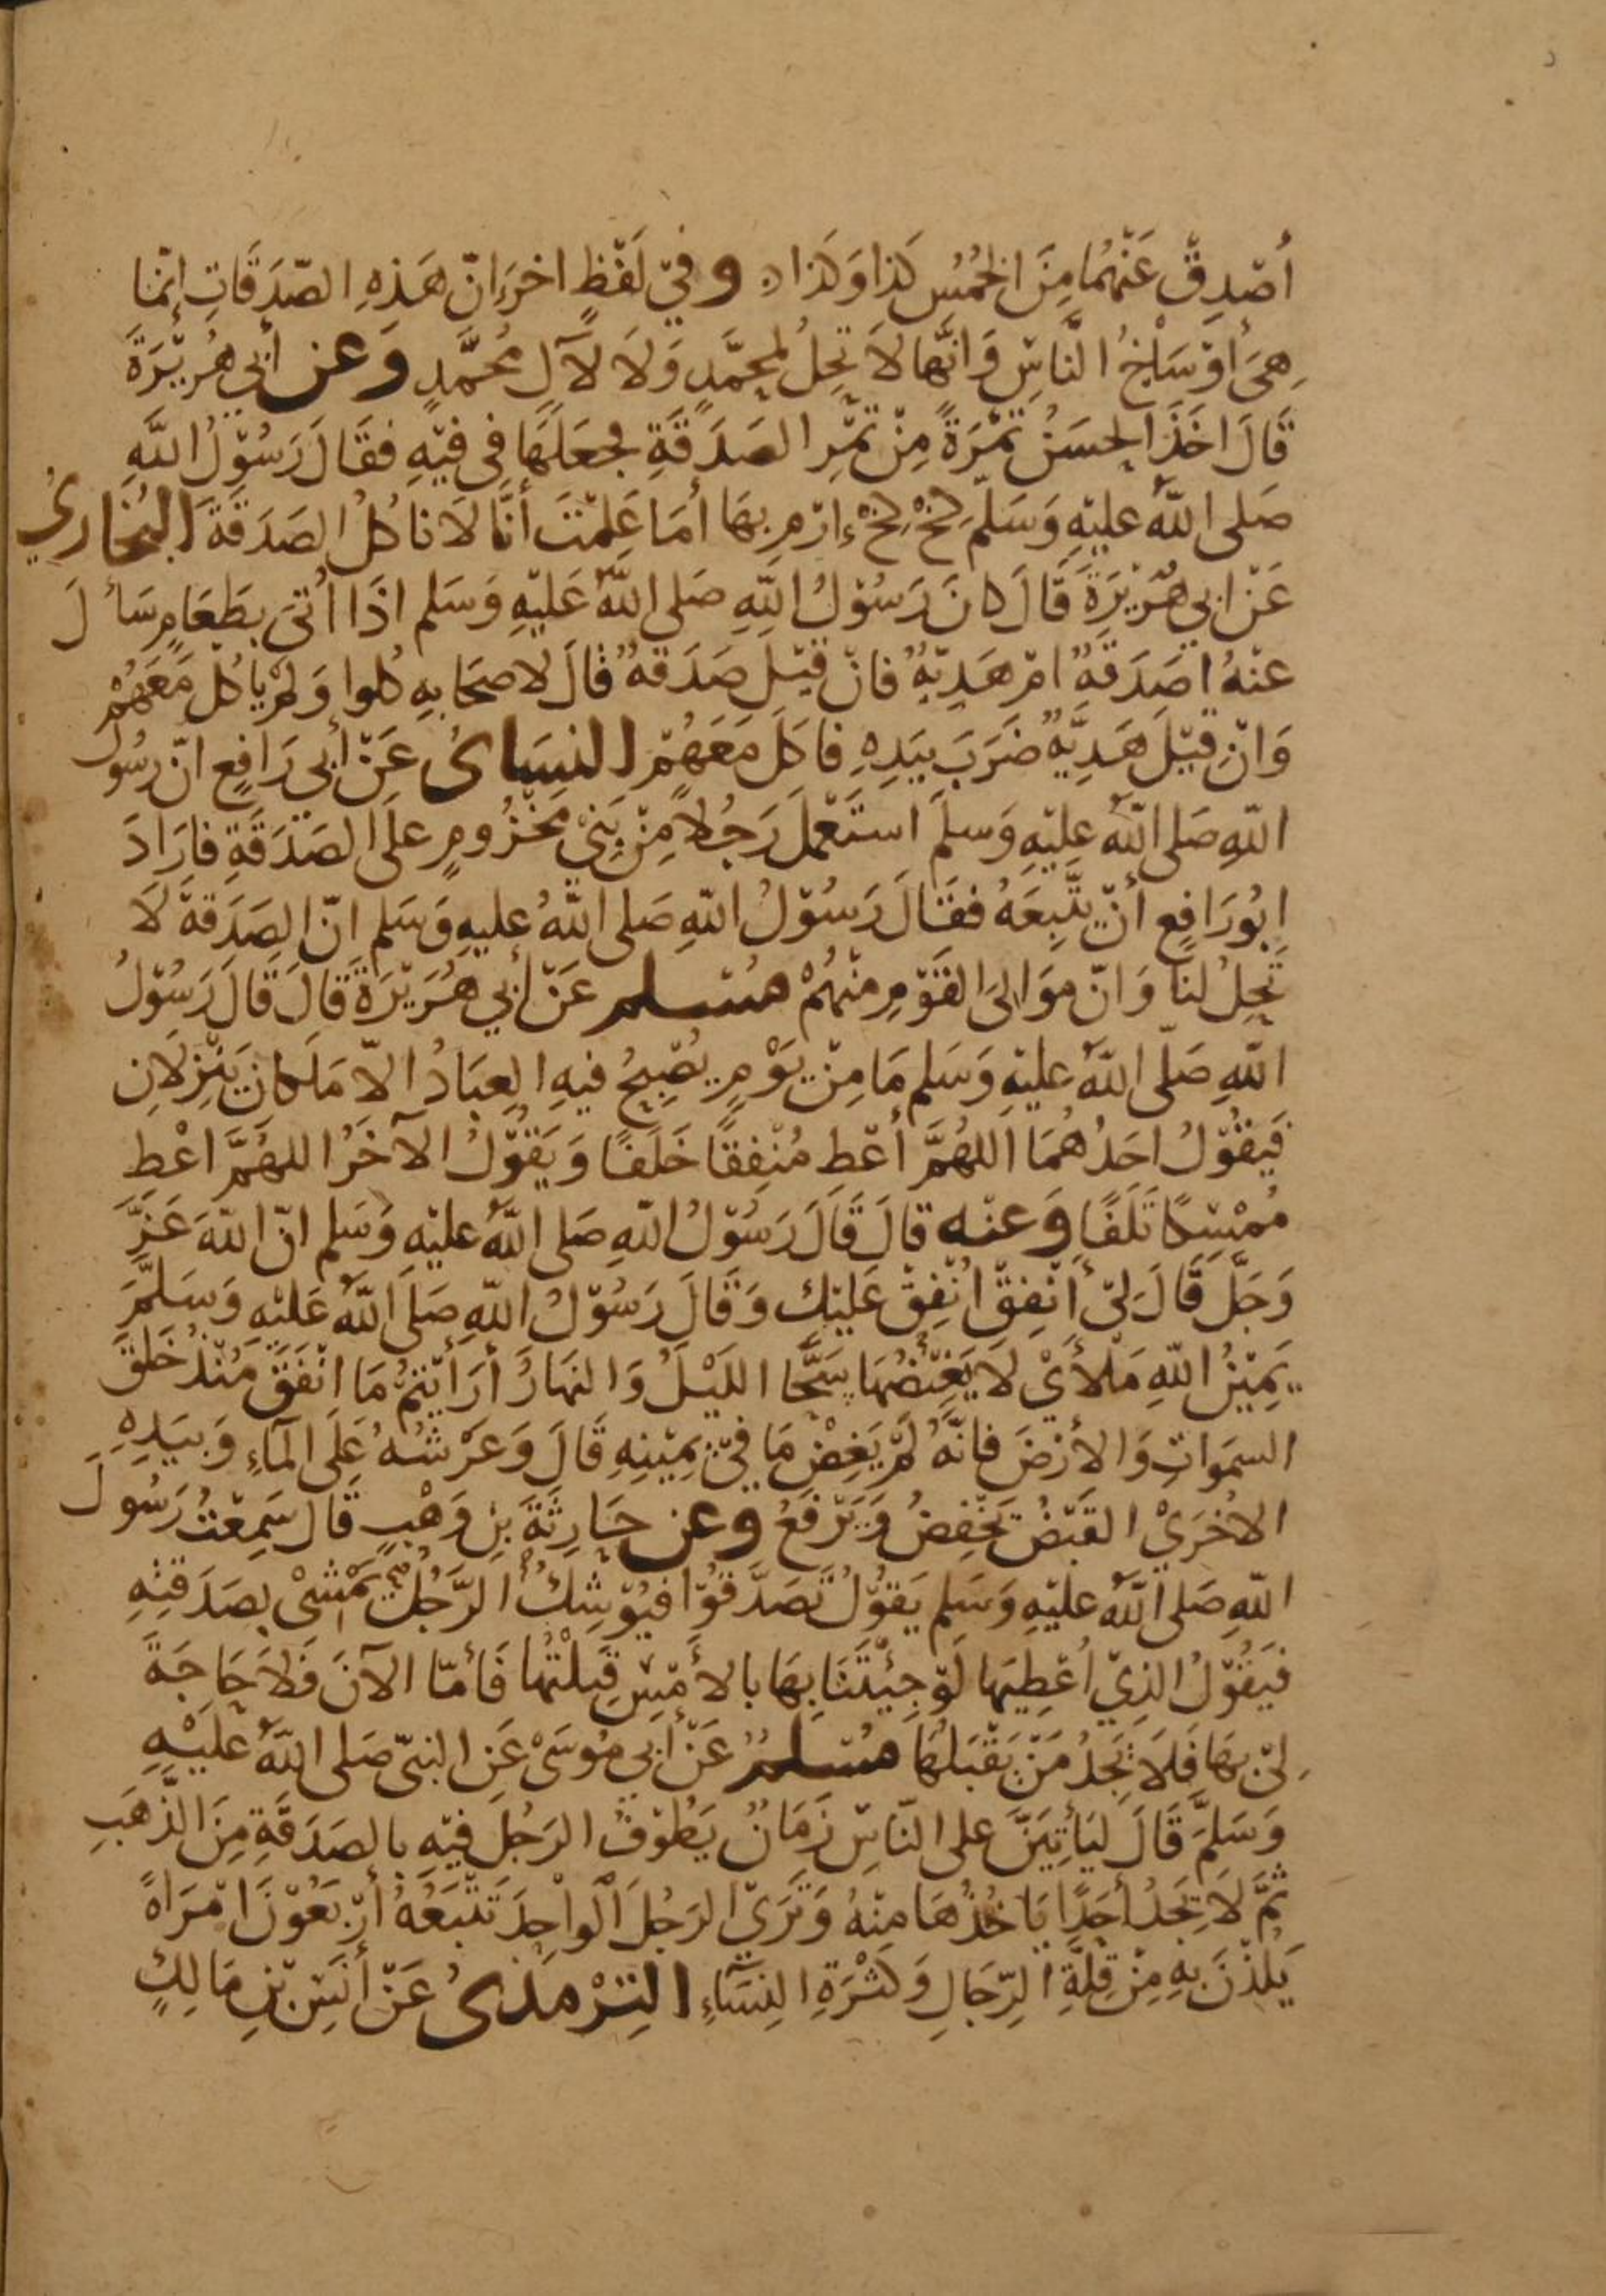 أصْدِقْ عَنْهُمَا مِنَ الخُمُسِ كَذَا وَكَذَا وفِي لَفْظٍ اخرَ إنّ هَذِهِ الصّدَقَاتِ إنّمَا
هِيَ أوْسَاخُ النَّاسِ وَانَّهَا لَا تَحِلُ لمحمَّدٍ وَلَا لآلِ مُحَمَّدٍ وَعن أبِي هُرَيْرَةَ
قَالَ اخَذَ الحَسَنُ تَمْرَةً مِنْ تَمْرِ الصَدَقَةِ فجعَلَهَا فِي فيْهِ فقَالَ رَسُوْلُ اللَّهِ
صَلى اللَّهُ عليْهِ وَسَلّمَ كِخْ كِخْ إرْمِ بِهَا أمَا عَلِمْتَ أنَّا لَا ناكُلُ الصَدَقَةَ البُخارِيُ
عَنْ ابِي هُرَيْرَةَ قَالَ كانَ رَسُوْلُ اللَّهِ صَلى اللَّهُ عَليْهِ وَسَلم اذَا اُتىَ بطَعَامٍ سَألَ
عنْهُ اصَدَقَةٌ امْ هَدِيّةٌ فانْ قيْلَ صَدَقةٌ قَالَ لاصحَابِهِ كُلوا وَلمْ يَاكُلْ مَعَهُمْ
وَانْ قيْلَ هَدِيَّةٌ ضَرَبَ بيَدِهِ فاكَلَ مَعَهُمْ النسَاىُ عَنْ أبِي رَافِعٍ انّ رسُولَ
اللّهِ صَلى اللَّهُ عليْهِ وَسلمَ استَعْمَلَ رَجُلاً مِنْ بَنِيْ مَخْزُومٍ علَى الصَدَقَةِ فارَادَ
ابُورَافِعٍ أنْ يَتَّبِعَهُ فقَالَ رَسُوْلُ اللّهِ صَلى اللَّهُ عليهِ وَسَلم انّ الصَدَقَةَ لَا
تَحِلُ لنَا وَانّ مَوَالِىَ القَوْمِ مِنْهُمْ مسْلم عَنْ أبِي هُرَيْرَةَ قَالَ قَالَ رَسُوْلُ
اللّهِ صَلّى اللَّهُ عليْهِ وَسَلم مَا مِنْ يَوْمٍ يُصْبِحُ فيهِ العِبَادُ الاّ مَلكانِ يَنْزِلَانِ
فَيَقُوْلُ احَدُهُمَا اللهُمَّ أعْطِ مُنْفِقًا خَلَفًا وَيَقُوْلُ الآخَرُ اللهُمَّ اعْطِ
مُمْسِكًا تَلَفًا وَعنْه قالَ قَالَ رَسُوْلُ اللّهِ صَلى اللَّهُ عليْهِ وَسَلم انّ اللّهَ عَزَّ
وَجَلَّ قَالَ لِيْ أنْفِقْ أُنْفِقْ عَليْك وَقَالَ رَسُوْلُ اللّهِ صَلَى اللَّهُ عَليْهِ وَسَلّمَ
يَمِيْنُ اللّهِ مَلْأَيْ لَا يَغِيْضُهَا سَحَّا اللّيْلَ وَالنهَارَ أرَأيْتمْ مَا انْفَقَ مُنْذُ خَلَقَ
السمَوَاتِ وَالأرْضَ فانّهُ لَمْ يَغِضْ مَا فِيْ يَمِيْنِهِ قَالَ وَعَرْشُهُ عَلَى المَآءِ وَبيَدِهِ
الاخْرَيْ القَبْضُ يخْفِضُ وَيَرْفَعُ وعن حَارِثَةَ بْنِ وَهْبٍ قَال سَمِعْتُ رَسُولَ
اللّهِ صَلى اللَّهُ عليْهِ وَسَلم يَقوْلُ تَصَدَّقُوْا فيُوْشِكُ الرَّجُلُ يَمْشِيْ بصَدَقتِهِ
فيَقُوْلُ الذِيْ اُعْطِيَهَا لَوْ جِئْتَنَا بِهَا بالأمْسِ قَبلْتُها فَأمّا الآنَ فَلَا حَاجَةَ
لِيْ بهَا فَلَا يَجدُ مَنْ يَقْبَلُهَا مسْلمٌ عَنْ أبِي مُوسَىْ عَنِ النبيّ صَلى اللَّهُ عَلَيْهِ
وَسَلمَّ قَالَ ليَأتِيَنَّ على النّاسِ زَمَانٌ يَطُوْفُ الرَجُلُ فيْهِ بالصَدَقَةِ مِنَ الذَّهَبِ
ثمَّ لَا يَجدُ أحَدًا يَاخُذُهَا مِنْهُ وَتَرَيْ الرَجُلَ الوَاحِدَ تَتْبَعُهُ أرْبَعُوْنَ امْرَاةً
يَلُذْنَ بِهِ مِنْ قِلَّةِ الرِّجَالِ وَكَثْرَةِ النِسَآءِ التِرْمذىُ عَنْ أنَسِ بْنِ مَالِكٍ